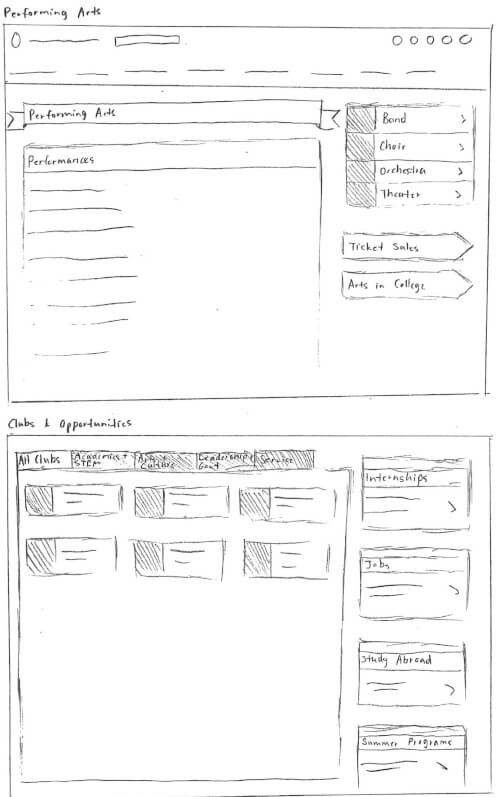 Performing Arts
Performing Arts
Performances
Band
Choir
Orchestra
Theater
Ticket Sales
Arts in College
Clubs & Opportunities
All Clubs
Academics +
STEM
Art +
Culture
Leadership &
Govt
Service
Internships
Jobs
Study Abroad
Summer Programs